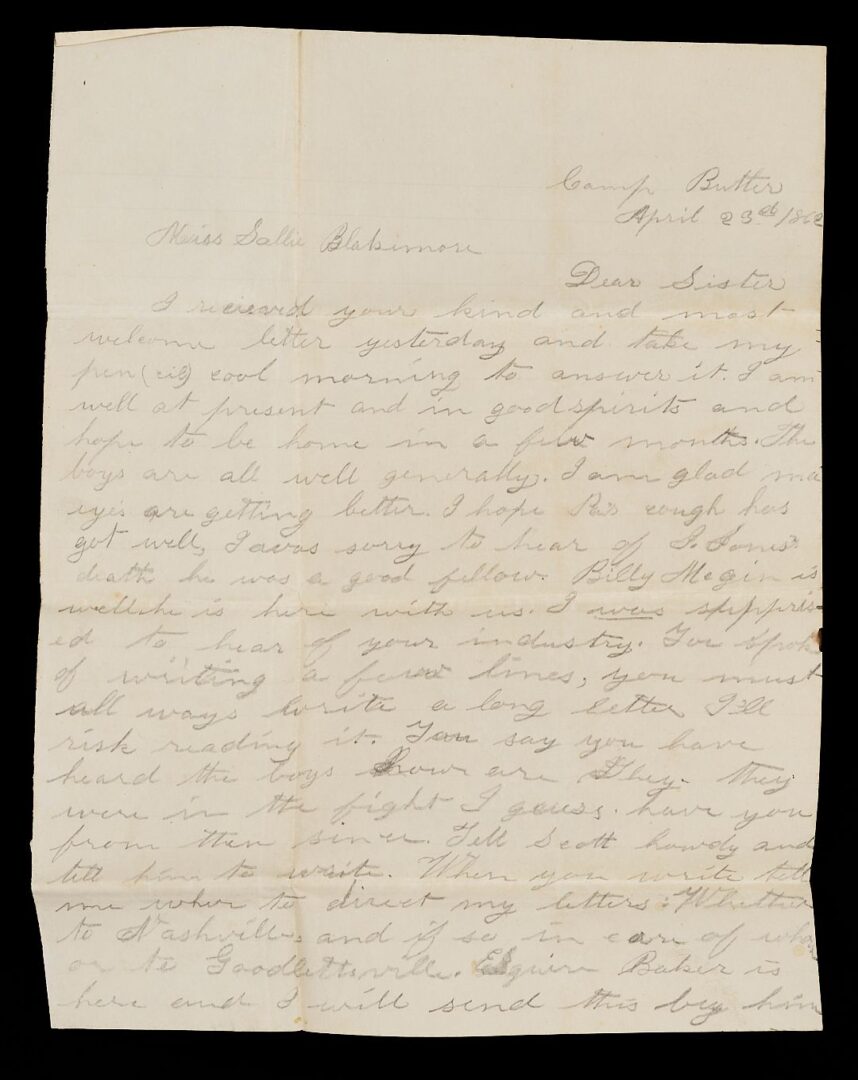 Camp Butler
April 23rd 1862
Miss Sallie Blakemore
Dear Sister
I recieved your kind and most
welcome letter yesterday and take my
pen(cil) cool morning to answer it. I am
well at present and in good spirits and
hope to be home in a few months. The
boys are all well generally. I am glad ma
eyes are getting better. I hope Pa's cough has
got well, I was sorry to hear of J. Jones'
death he was a good fellow. Billy Megin is
well he is here with us. I was suppris-
ed to hear of your industry. You spok
of writing a few lines, you must
all ways write a long letter I'll
risk reading it. You say you have
heard the boys how are they. they
were in the fight I guess. have you
from then since. Tell Scott howdy and
tell him to write. When you write tell
me wher to direct my letters. Whether
to Nashville, and if so in care of whom
or to Goodlettsville. Esquire Baker is
here and I will send this by him